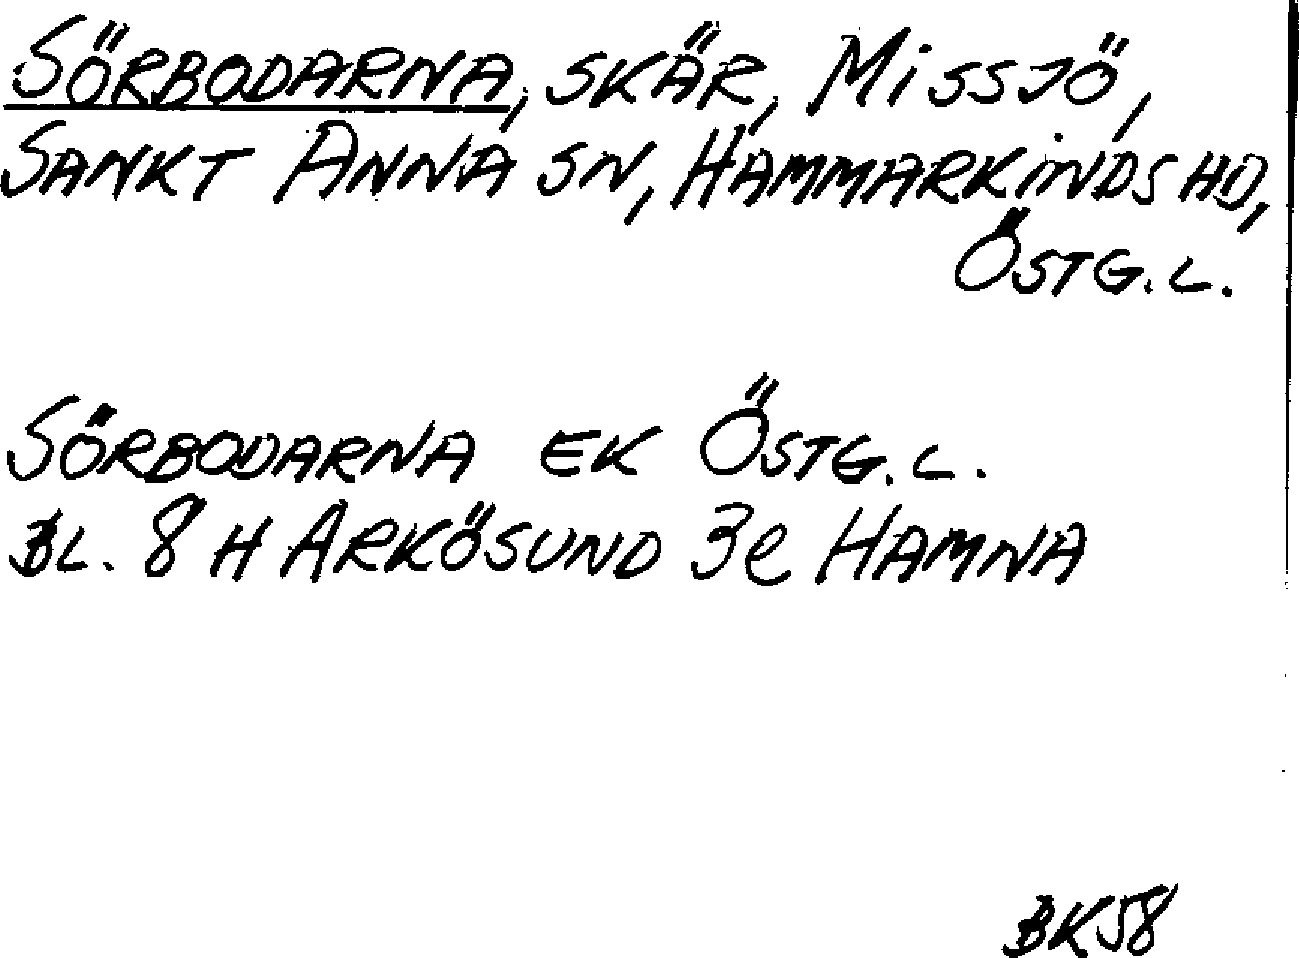 SÖRBODARNA, SKÄR, MISSJÖ,
SANKT ANNA SN, HAMMARKINDS HD,
ÖSTG. L.
SÖRBODARNA EK ÖSTG. L.
BL. 8 H ARKÖSUND 3e HAMNA
BK58